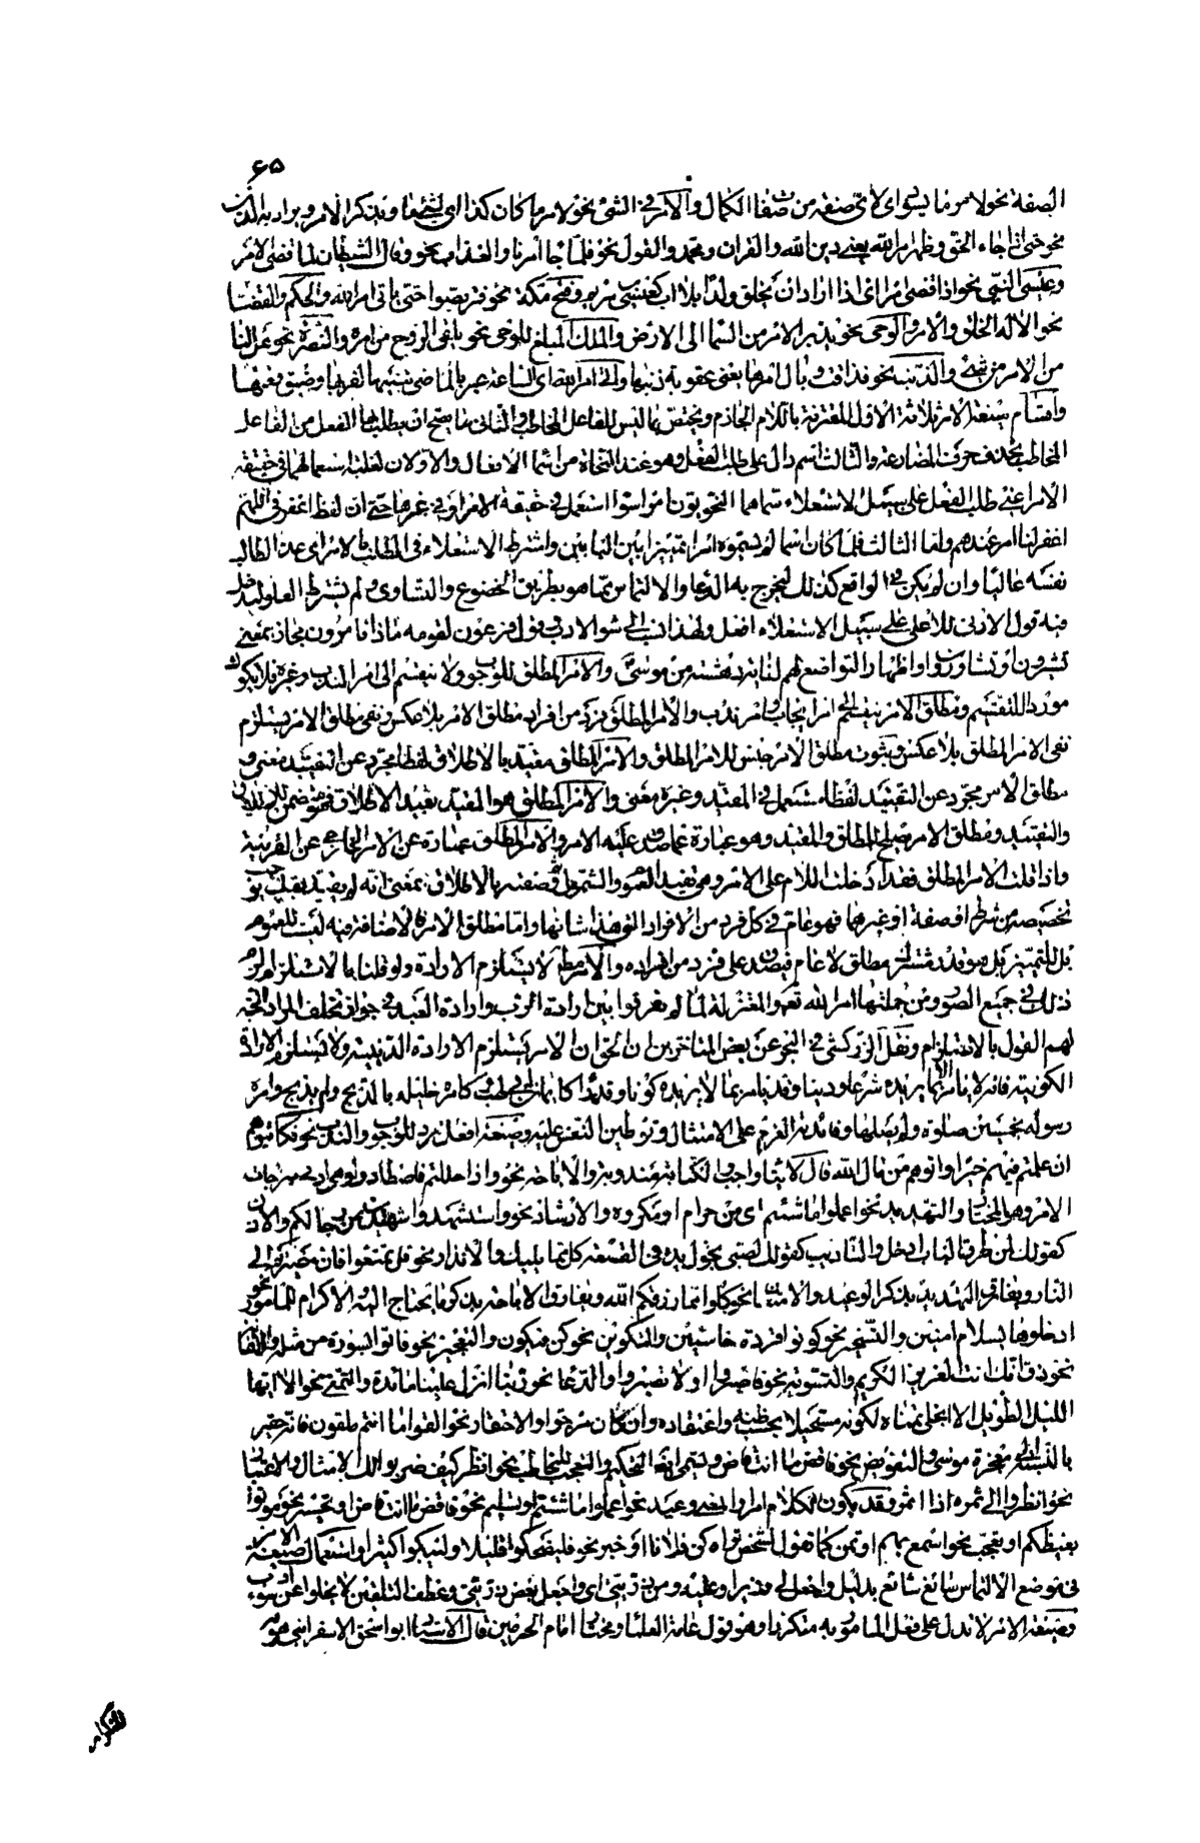 ٦٥
الصفة نحو لامر ما يسود اى لاى صفة من صفات الكمال والامر فى الشئ نحو لامر ما كان كذا اى لشئ ما ويذكر الامر ويراد به الدين
نحو حتى اذا جاء الحق وظهر امر الله يعنى دين الله والقران ومحمد والقول نحو فلما جاء امرنا والعذاب نحو وقال الشيطان لما قضى الامر
وعيسى النبى نحو اذا قضى امرا اى اذا اراد ان يخلق ولدا بلا اب كعيسى بن مريم وفتح مكة نحو فتربصوا حتى ياتى امر الله والحكم والقضاء
نحو الا له الخلق والامر والوحى نحو يدبر الامر من السماء الى الارض والملك المبلغ للوحى نحو يلقى الروح من امره والنصرة نحو هل لنا
من الامر من شئ والذنب نحو فذاقت وبال امرها يعنى عقوبة ذنبها واتى امر الله اى الساعة عبر بالماضى تنبيها لقربها وضيق وقتها
واقسام صيغة الامر ثلاثة الاول المقترنة باللام الجازم ويختص بما ليس للفاعل المخاطب والثانى ما يصح ان يطلب بها الفعل من الفاعل
المخاطب بحذف حرف المضارعة والثالث اسم دال على طلب الفعل وهو عند النحاة من اسماء الافعال والاولان لغلبة استعمالهما فى حقيقة
الامر اعنى طلب الفعل على سبيل الاستعلاء سماهما النحويون امرا سواء استعمل فى حقيقة الامر او فى غيرها حتى ان لفظ اغفر فى اللهم
اغفر لنا امر عندهم واما الثالث فلما كان اسما لم يسموه امرا تمييزا بين البابين واشترط الاستعلاء فى الطلب بالامر اى عد الطالب
نفسه عاليا وان لم يكن فى الواقع كذلك ليخرج به الدعاء والالتماس مما هو بطريق الخضوع والتساوى ولم يشترط العلو ليدخل
فيه قول الادنى للاعلى على سبيل الاستعلاء افعل ولهذا نسب الى سوء الادب وقول فرعون لقومه ماذا تامرون مجاز بمعنى
تشيرون او تشاورون او اظهار التواضع لهم لغاية دهشته من موسى والامر المطلق للوجوب ولا ينقسم الى امر الندب وغيره فلا يكون
موردا للتقسيم ومطلق الامر ينقسم الى امر ايجاب وامر ندب والامر المطلق فرد من افراد مطلق الامر بلا عكس ونفى مطلق الامر يستلزم
نفى الامر المطلق بلا عكس وثبوت مطلق الامر جنس للامر المطلق والامر المطلق مقيد بالاطلاق لفظا مجرد عن التقييد معنى و
مطلق الامر مجرد عن التقييد لفظا مستعمل فى المقيد وغيره معنى والامر المطلق هو المقيد بقيد الاطلاق فهو متضمن للاطلاق
والتقييد ومطلق الامر يصلح للمطلق والمقيد وهو عبارة عما صدق عليه الامر والامر المطلق عبارة عن الامر الخالى عن القرينة
واذا قلت الامر المطلق فقد ادخلت اللام على الامر وهى تفيد العموم والشمول ثم وصفته بالاطلاق بمعنى انه لم يقيد بقيد يوجب
تخصيصه من شرط او صفة او غيرهما فهو عام فى كل فرد من الافراد التى هذا شانها واما مطلق الامر فالاضافة فيه ليست للعموم
بل للتمييز بل هو قدر مشترك مطلق لا عام فيصدق على فرد من افراده والامر مطلقا لا يستلزم الارادة ولو قلنا بالاستلزام لزم
ذلك فى جميع الصور ومن جملتها امر الله تعالى والمعتزلة لما لم يفرقوا بين ارادة الرب وارادة العبد فى جواز تخلف المراد اتجه
لهم القول بالاستلزام ونقل الزركشى فى البحر عن بعض المتاخرين ان الحق ان الامر يستلزم الارادة الدينية ولا يستلزم الارادة
الكونية فانه لا يامر الا بما يريده شرعا ودينا وقد يامر بما لا يريده كونا وقدرا كايمان ابى لهب وكامره خليله بالذبح ولم يذبح وامره
رسوله بخمسين صلوة ولم يصلها وفائدته العزم على الامتثال وتوطين النفس عليه وصيغة افعل ترد للوجوب والندب نحو فكاتبوهم
ان علمتم فيهم خيرا واتوهم من مال الله قال الايتاء واجب والكتابة مندوبة والاباحة نحو واذا حللتم فاصطادوا وهى ادنى درجات
الامر وهو المختار والتهديد نحو اعملوا ما شئتم اى من حرام او مكروه والارشاد نحو واستشهدوا شهيدين من رجالكم والاذن
كقولك لمن طرق الباب ادخل والتاديب كقولك لصبى يجول يده فى القصعة كل مما يليك والانذار نحو قل تمتعوا فان مصيركم الى
النار ويفارق التهديد بذكر الوعيد والامتنان نحو كلوا مما رزقكم الله ويفارق الاباحة بذكر ما يحتاج اليه والاكرام للمامور نحو
ادخلوها بسلام امنين والتسخير نحو كونوا قردة خاسئين والتكوين نحو كن فيكون والتعجيز نحو فاتوا بسورة من مثله والاهانة
نحو ذق انك انت العزيز الكريم والتسوية نحو فاصبروا او لا تصبروا والدعاء نحو ربنا انزل علينا مائدة والتمنى نحو الا ايها
الليل الطويل الا انجلى تمناه لكونه مستحيلا بحسب ظنه واعتقاده وان كان مرجوا والاحتقار نحو القوا ما انتم ملقون فانه حقير
بالنسبة الى معجزة موسى والتفويض نحو فاقض ما انت قاض ويسمى ايضا التحكيم والتعجب للمخاطب نحو انظر كيف ضربوا لك الامثال والاعتبار
نحو انظروا الى ثمره اذا اثمر وقد يكون الكلام امرا والمعنى وعيد نحو اعملوا ما شئتم او تسليم نحو فاقض ما انت قاض او تحسير نحو موتوا
بغيظكم او تعجب نحو اسمع بهم او تمن كما تقول لشخص تراه كن فلانا او خبر نحو فليضحكوا قليلا وليبكوا كثيرا واستعمال صيغة الامر
فى موضع الالتماس سائغ شائع بدليل واجعل لى وزيرا وعليه ومن ذريتى اى واجعل بعض ذريتى وعطف التلقين لا يخلو عن سوء ادب
وصيغة الامر لا تدل على فعل المامور به متكررا وهو قول عامة العلماء ومختار امام الحرمين قال الاستاذ ابو اسحق الاسفراينى هو
للتكرار